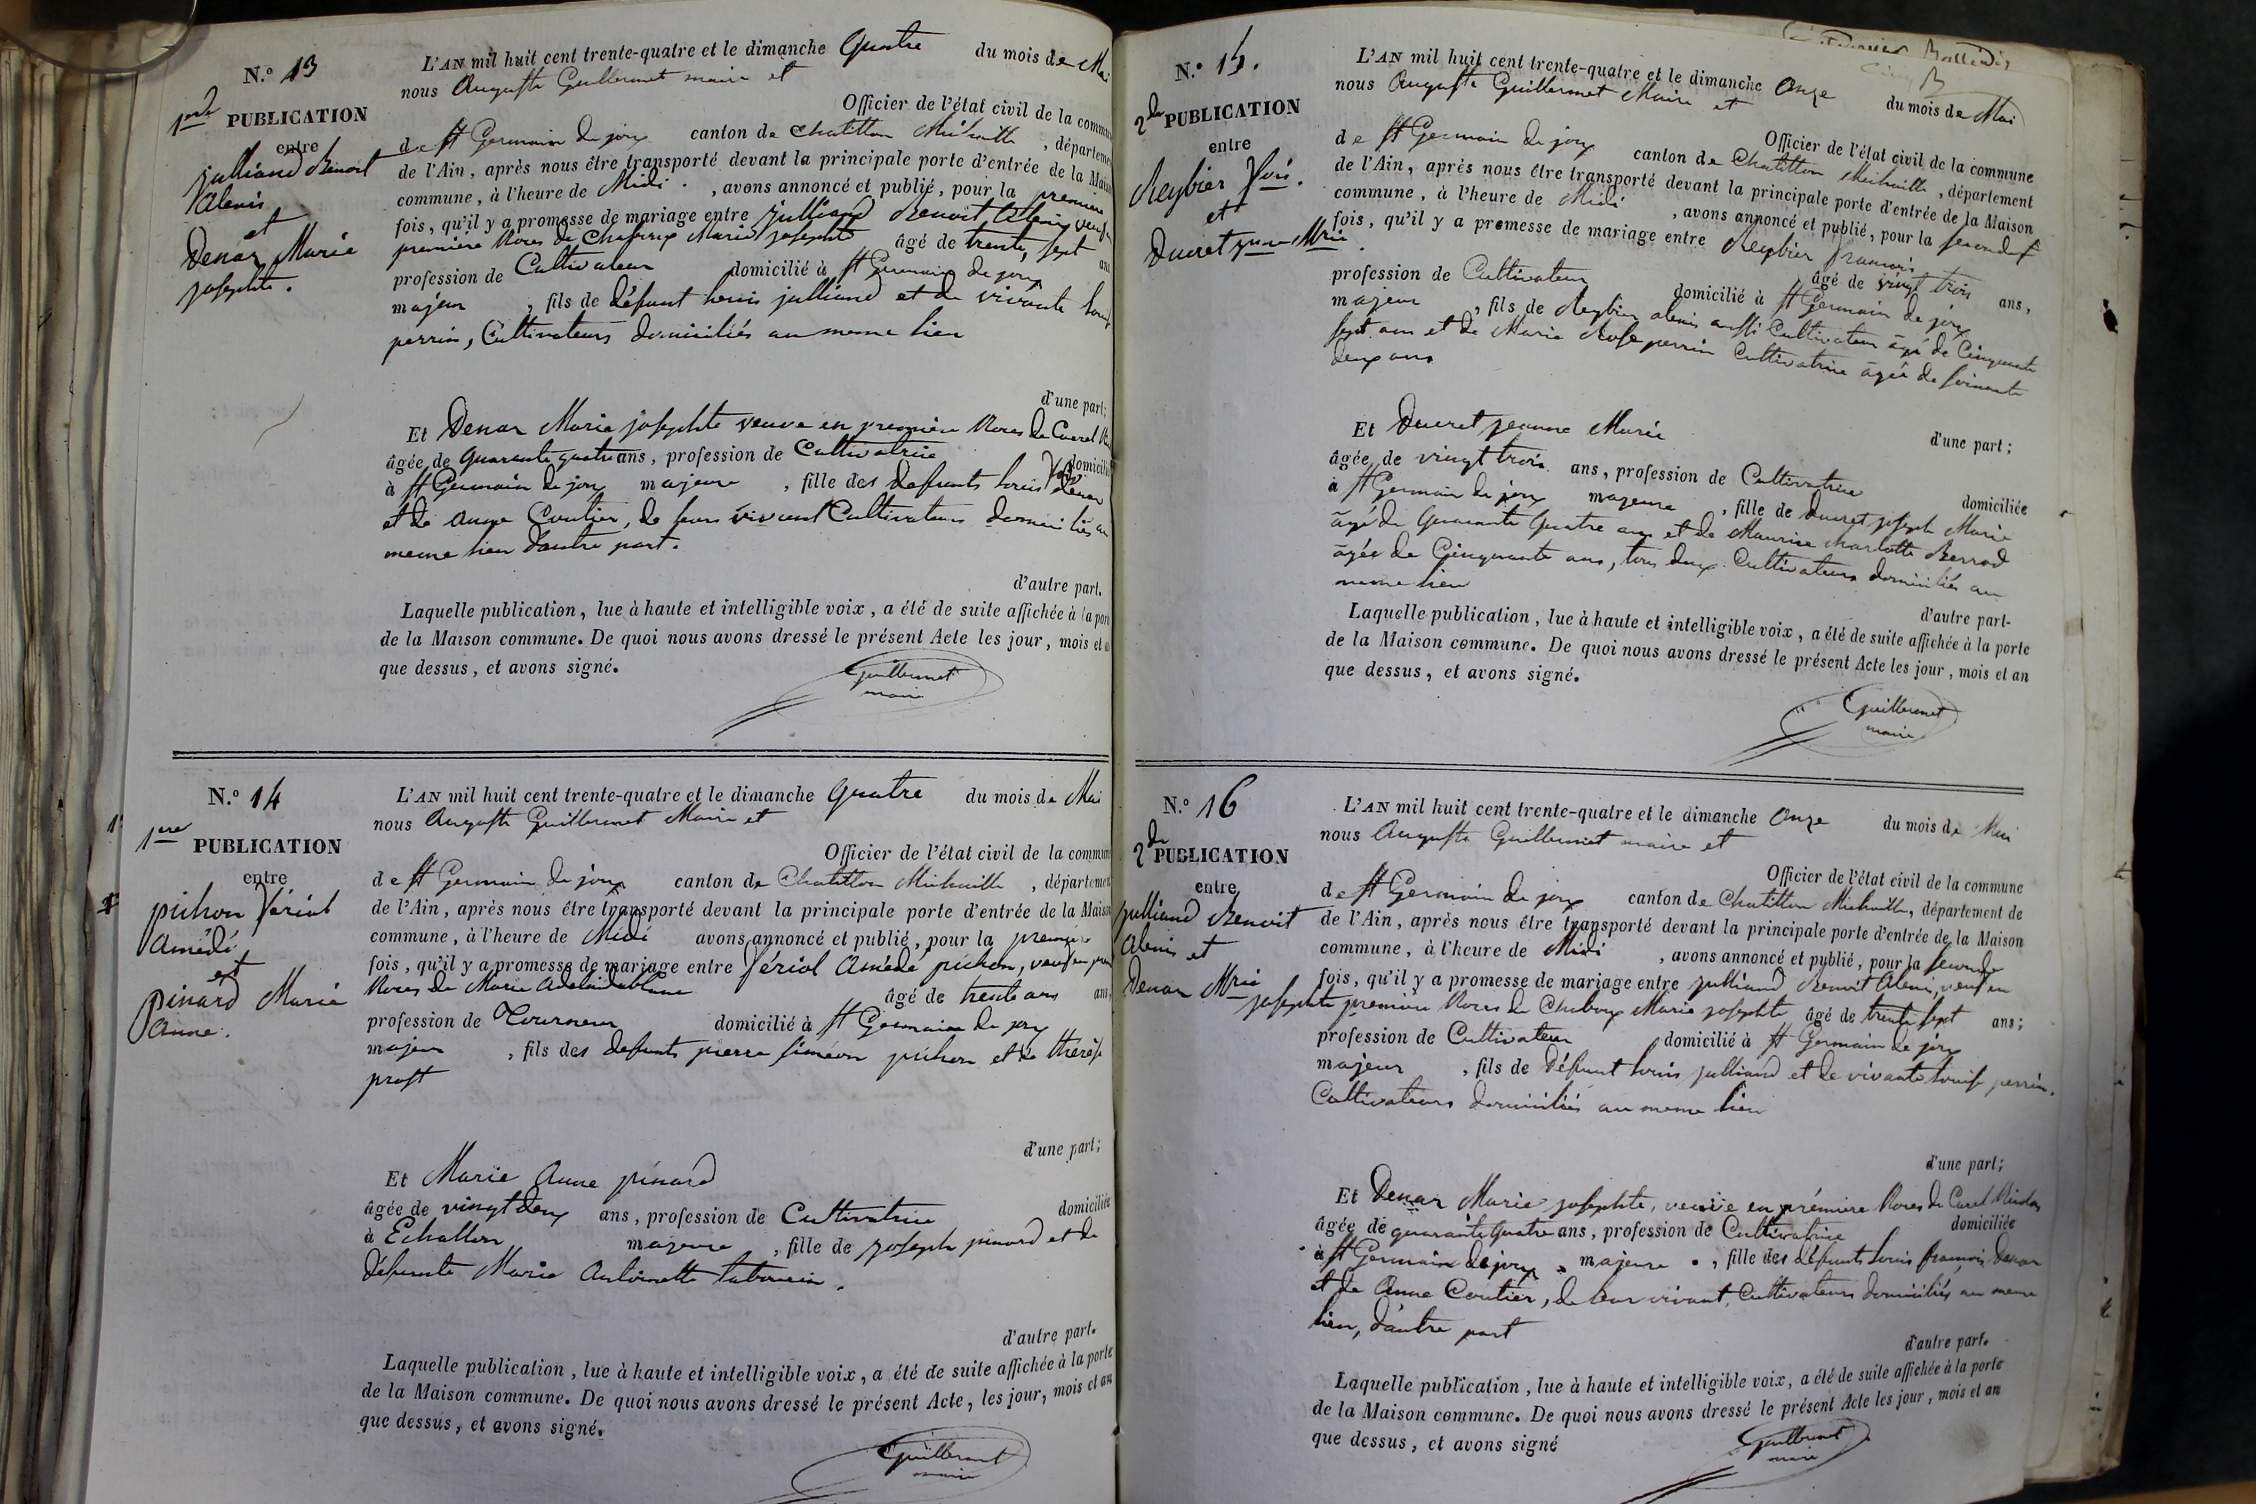 N.º 13
1ere PUBLICATION
entre
julliand Benoit
Alexis
et
Denar Marie
josephte.
L'AN mil huit cent trente-quatre et le dimanche quatre du mois de Mai
nous Auguste Guillermet maire et
Officier de l'état civil de la commu
de St Germain de joux canton de Chatillon Michaille, départeme
de l'Ain, après nous être transporté devant la principale porte d'entrée de la Mais
commune, à l'heure de Midi, avons annoncé et publié, pour la premiere
fois, qu'il y a promesse de mariage entre julliand Benoit Alexis veuf en
premiere Noces de Marie josephte âgé de trente sept ans
profession de Cultivateur domicilié à St Germain de joux
majeur, fils de défunt louis julliand et de vivante louise
perrin, Cultivateurs domiciliés au meme lieu
d'une part;
Et Denar Marie josephte veuve en premiere Noces de
âgée de quarante quatre ans, profession de Cultivatrice domicilié
à St Germain de joux majeure, fille des defunts louis fois denar
et de anne Coutier, de leurs vivant Cultivateurs domiciliés au
meme lieu d'autre part.
d'autre part.
Laquelle publication, lue à haute et intelligible voix, a été de suite affichée à la port
de la Maison commune. De quoi nous avons dressé le présent Acte les jour, mois et a
que dessus, et avons signé.
Guillermet
maire
N.º 14
1ere
PUBLICATION
entre
pichon fériol
Amédé
et
pinard Marie
Anne.
L'AN mil huit cent trente-quatre et le dimanche quatre du mois de Mai
nous Auguste Guillermet Maire et
Officier de l'état civil de la commun
de St Germain de joux canton de Chatillon Michaille, départemen
de l'Ain, après nous être transporté devant la principale porte d'entrée de la Maison
commune, à l'heure de Midi avons annoncé et publié, pour la premiere
fois, qu'il y a promesse de mariage entre fériol Amédé pichon, veuf en
Noces de Marie Adelaide blanc âgé de trente ans ans,
profession de Tourneur domicilié à St Germain de joux
majeur, fils des defunts pierre siméon pichon et de thérèse
prost
d'une part;
Et Marie Anne pinard
âgée de vingt deux ans, profession de Cultivatrice domiciliée
à Echallon majeure, fille de joseph pinard et de
défunte Marie Antoinette
d'autre part.
Laquelle publication, lue à haute et intelligible voix, a été de suite affichée à la porte
de la Maison commune. De quoi nous avons dressé le présent Acte, les jour, mois et an
que dessus, et avons signé.
Guillermet
maire
N.º 15.
2de PUBLICATION
entre
Reybier fois.
et
Ducret jeanne Mrie
L'AN mil huit cent trente-quatre et le dimanche Onze du mois de Mai
nous Auguste Guillermet Maire et
Officier de l'état civil de la commune
de St Germain de joux canton de Chatillon Michaille, département
de l'Ain, après nous être transporté devant la principale porte d'entrée de la Maison
commune, à l'heure de Midi, avons annoncé et publié, pour la seconde
fois, qu'il y a promesse de mariage entre Reybier francois
âgé de vingt trois ans,
profession de Cultivateur domicilié à St Germain de joux
majeur, fils de Reybier alexis aussi Cultivateur âgé de Cinquante
sept ans et de Marie Rose perrin Cultivatrice âgée de soixante
deux ans
d'une part;
Et Ducret jeanne Marie
âgée de vingt trois ans, profession de Cultivatrice domiciliée
à St Germain de joux majeure, fille de Ducret joseph Marie
âgé de quarante quatre ans et de Maurise Charlotte Berrod
âgée de Cinquante ans, tous deux Cultivateurs domiciliés au
meme lieu
d'autre part.
Laquelle publication, lue à haute et intelligible voix, a été de suite affichée à la porte
de la Maison commune. De quoi nous avons dressé le présent Acte les jour, mois et an
que dessus, et avons signé.
Guillermet
maire
N.º 16
2de
PUBLICATION
entre
julliand Benoit
Alexis et
Denar Mrie
josephte
L'AN mil huit cent trente-quatre et le dimanche Onze du mois de Mai
nous Auguste Guillermet maire et
Officier de l'état civil de la commune
de St Germain de joux canton de Chatillon Michaille, département de
de l'Ain, après nous être transporté devant la principale porte d'entrée de la Maison
commune, à l'heure de Midi, avons annoncé et publié, pour la seconde
fois, qu'il y a promesse de mariage entre julliand Benoit Alexis, veuf en
premiere Noces de Marie josephte âgé de trente sept ans;
profession de Cultivateur domicilié à St Germain de joux
majeur, fils de défunt louis julliand et de vivante louise perrin.
Cultivateurs domiciliés au meme lieu
d'une part;
Et Denar Marie josephte, veuve en premiere Noces de
âgée de quarante quatre ans, profession de Cultivatrice domiciliée
à St Germain de joux, majeure, fille des défunts louis francois Denar
et de Anne Coutier, de leur vivant Cultivateurs domiciliés au meme
lieu, d'autre part
d'autre part.
Laquelle publication, lue à haute et intelligible voix, a été de suite affichée à la porte
de la Maison commune. De quoi nous avons dressé le présent Acte les jour, mois et an
que dessus, et avons signé
Guillermet
maire